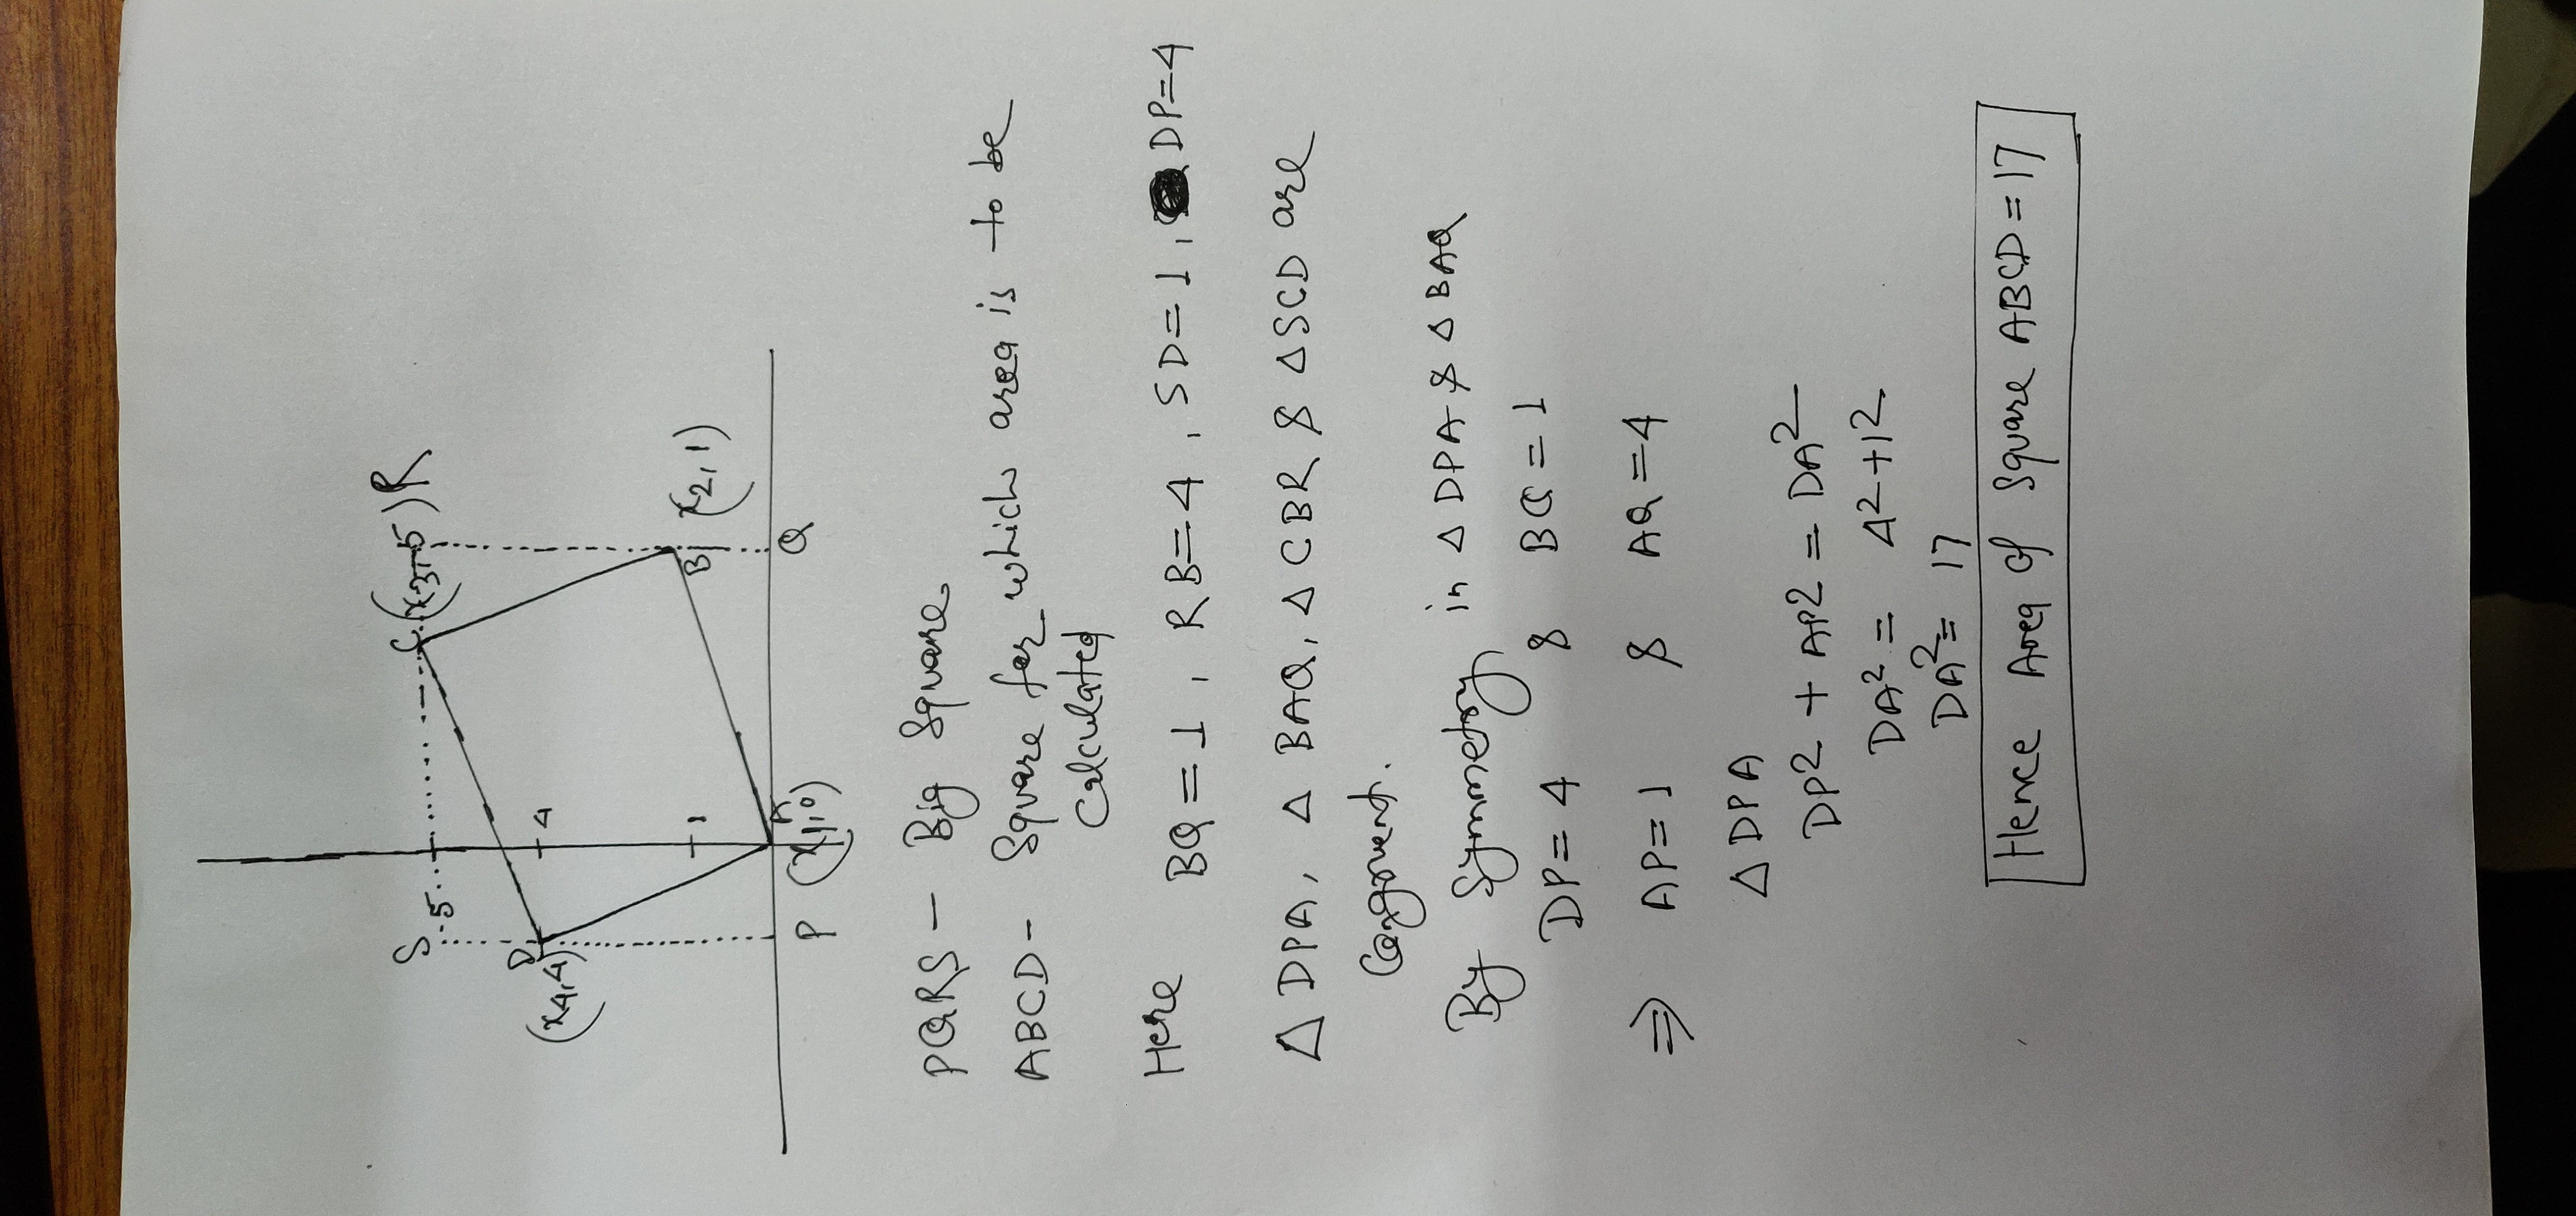 S
5
C
(x3,5)
R
D
(x4,4)
4
1
B
(x2,1)
P
A
(x1,0)
Q
PQRS - Big Square
ABCD - Square for which area is to be
Calculated
Here BQ = 1, RB = 4, SD = 1, DP = 4
△ DPA, △ BAQ, △ CBR & △SCD are
Congruent.
By Symmetry in △ DPA & △ BAQ
DP = 4 & BQ = 1
⇒ AP = 1 & AQ = 4
△ DPA
DP2 + AP2 = DA²
DA² = 4² + 1²
DA² = 17
Hence Area of Square ABCD = 17